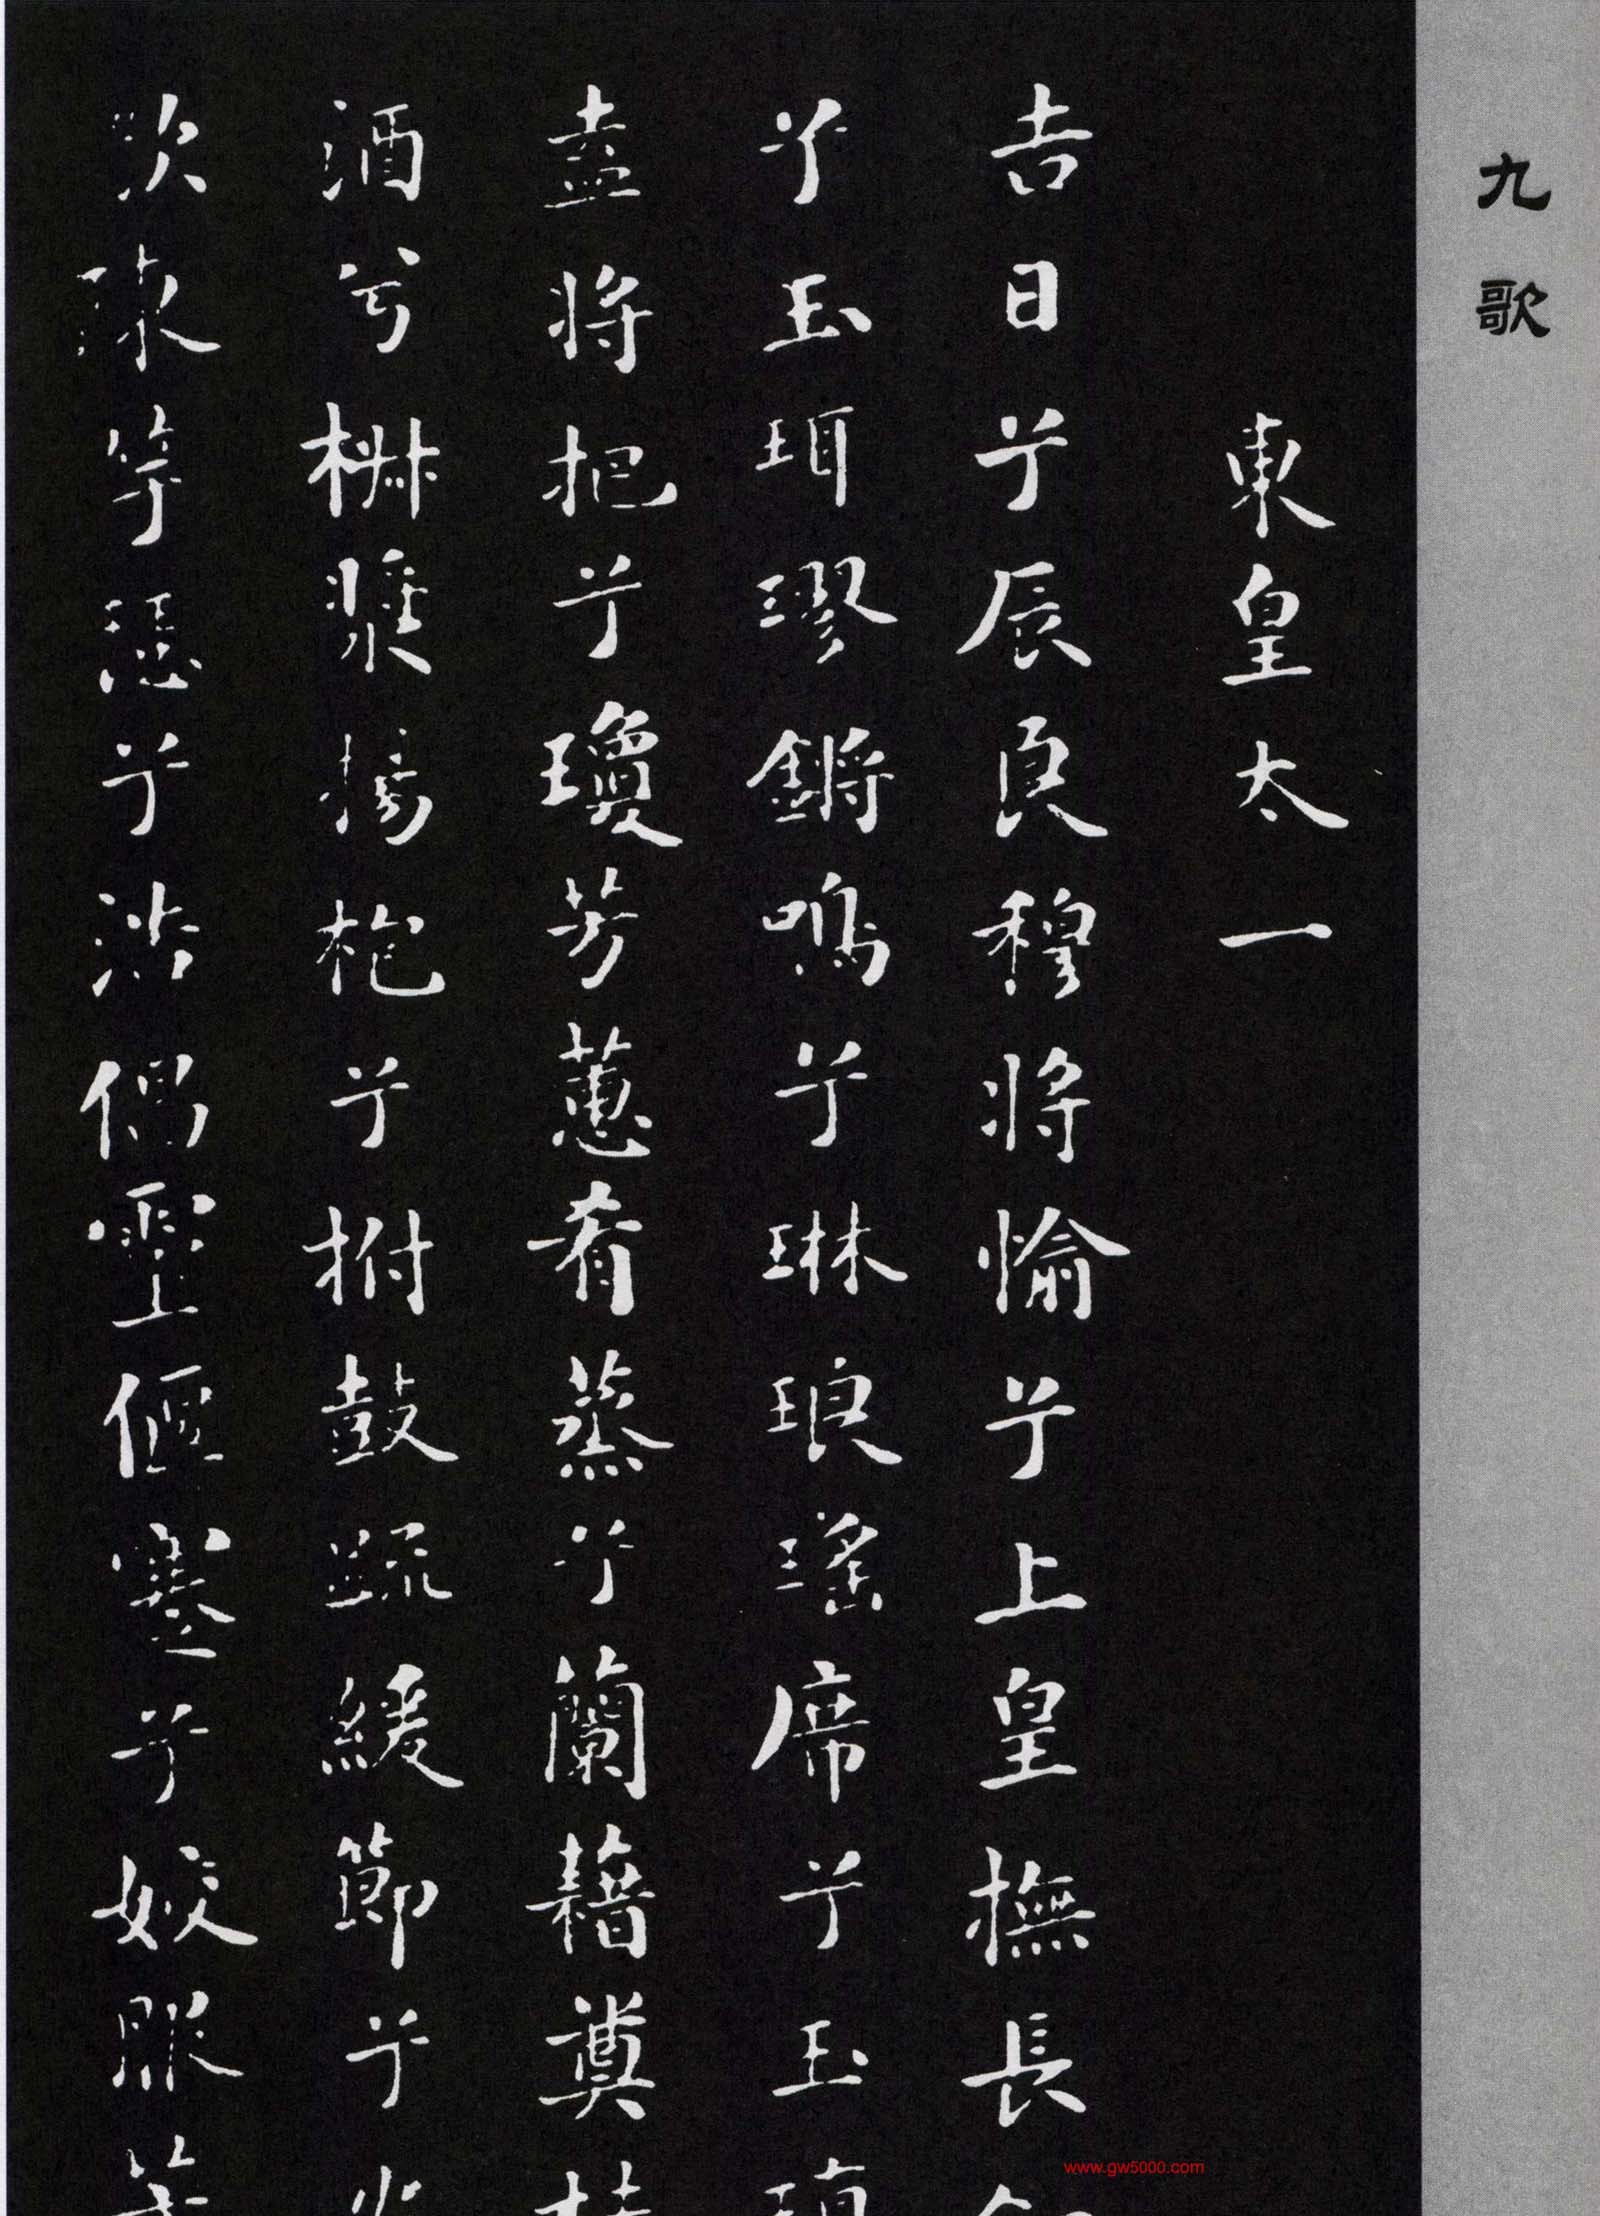 九歌
東皇太一
吉日兮辰良穆將愉兮上皇撫長
兮玉珥璆鏘鳴兮琳琅瑤席兮玉
盍將把兮瓊芳蕙肴蒸兮蘭藉奠
酒兮椒漿揚枹兮拊鼓疏緩節兮
歌陳竽瑟兮浩倡靈偃蹇兮姣服
www.gw5000.com